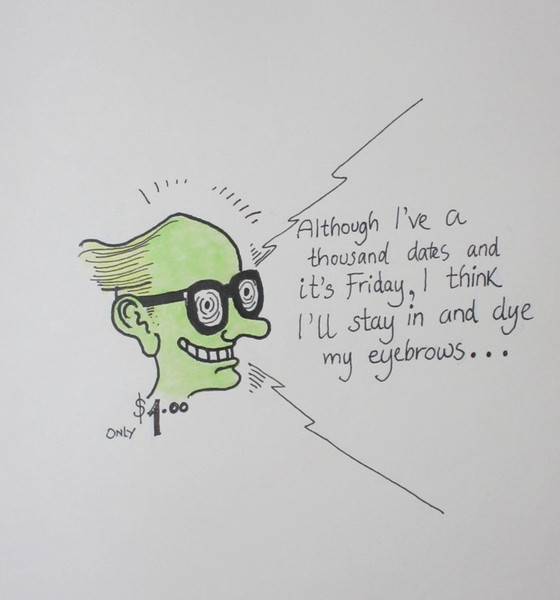 Although I've a
thousand dates and
it's Friday, I think
I'll stay in and dye
my eyebrows...
$1.00
ONLY